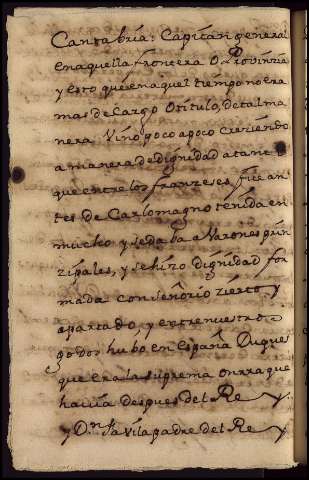 Cantabria: Capitan general
en aquella frontera O Provinzia
y esto que en aquel tiempo no era
mas de Cargo O titulo, de tal ma
nera Vino poco apoco Creziendo
a manera de dignidad atanto
que entre los franzeses fue an
tes de Carlomagno tenida en
mucho y se daba a Varones prin
zipales, y se hizo dignidad for
mada con señorio zierto y
apartado, y entre nuestros
godos hubo en España Duques
que era la suprema onrra que
havia despues del Re y.
y D.n favila padre del Re y